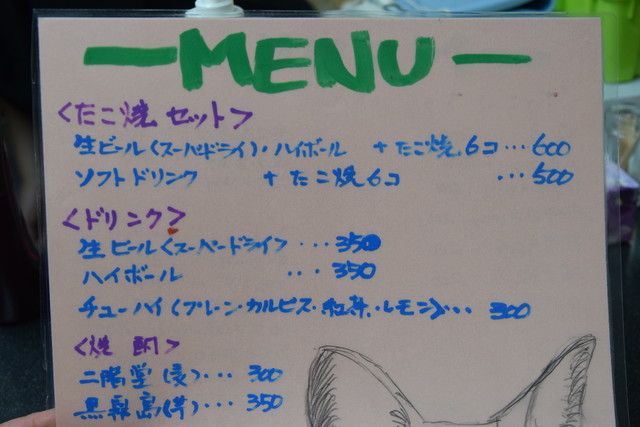 MENU
<たこ焼セット>
生ビール(スーパードライ)・ハイボール + たこ焼6コ・・・600
ソフトドリンク + たこ焼6コ ・・・500
<ドリンク>
生ビール<スーパードライ> ・・・350
ハイボール ・・・350
チューハイ(プレーン・カルピス・紅茶・レモン)・・・300
<焼酎>
二階堂(麦)・・・300
黒霧島(芋)・・・350